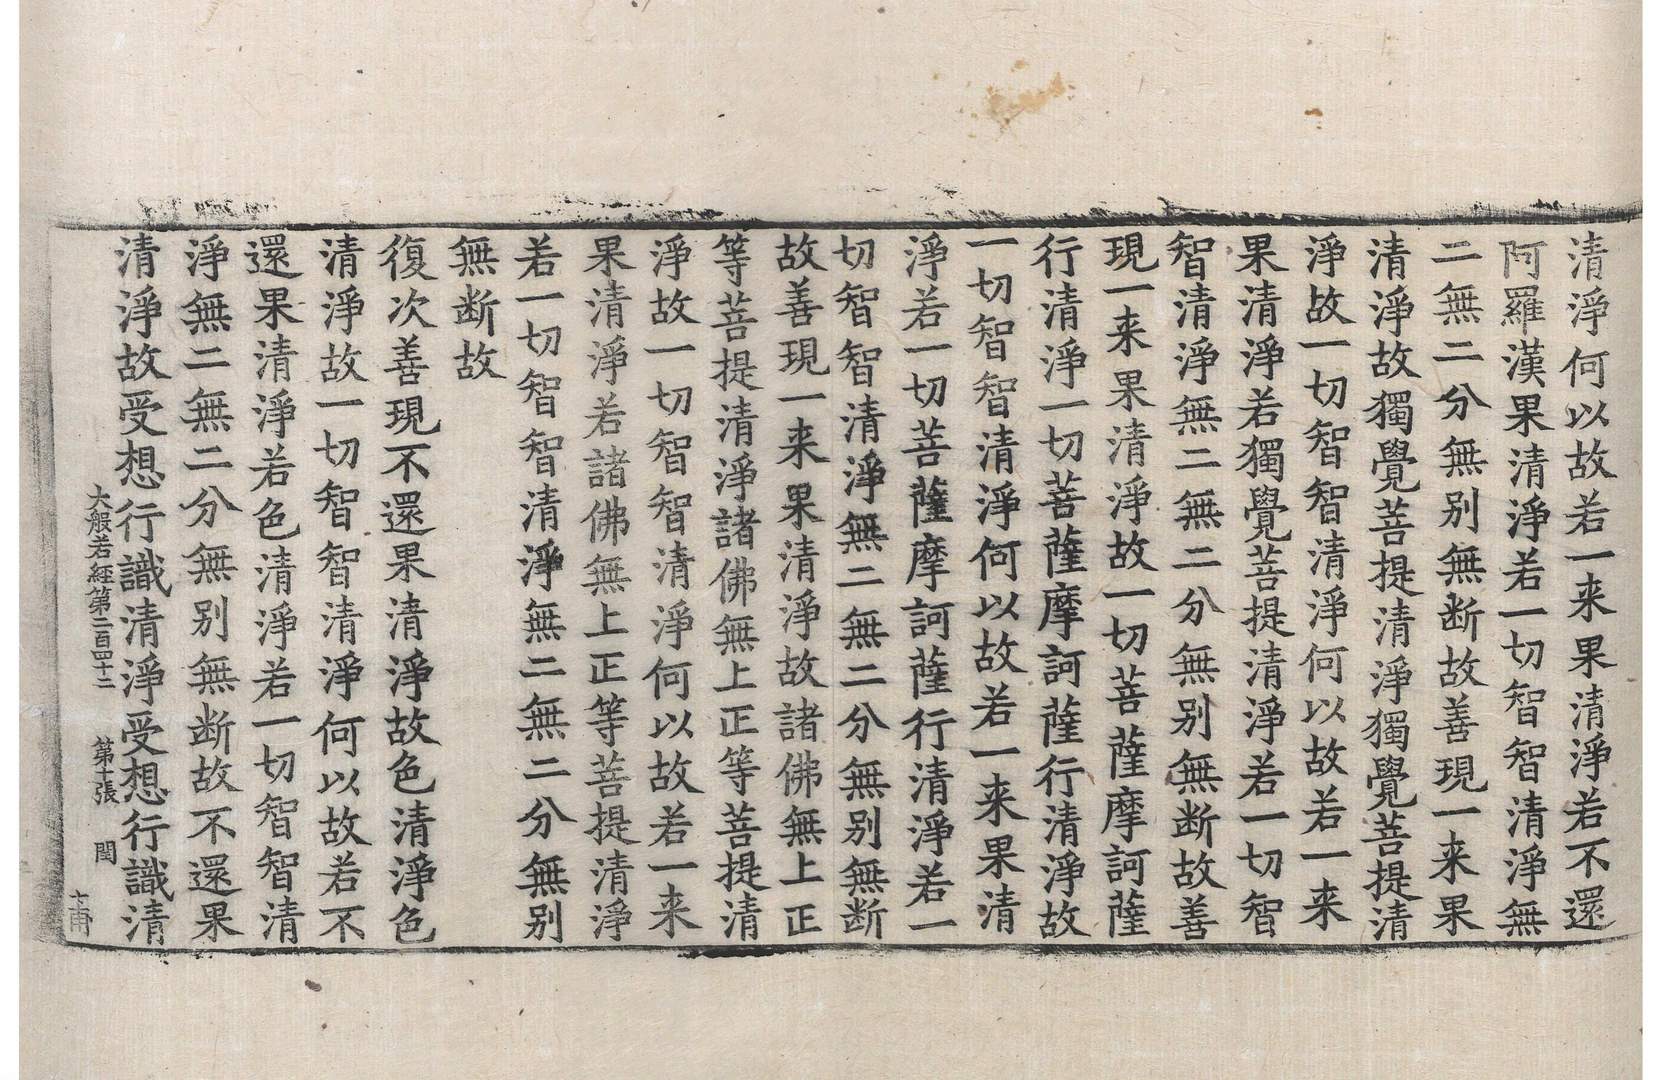 清淨何以故若一来果清淨若不還
阿羅漢果清淨若一切智智清淨無
二無二分無别無断故善現一来果
清淨故獨覺菩提清淨獨覺菩提清
淨故一切智智清淨何以故若一来
果清淨若獨覺菩提清淨若一切智
智清淨無二無二分無别無断故善
現一来果清淨故一切菩薩摩訶薩
行清淨一切菩薩摩訶薩行清淨故
一切智智清淨何以故若一来果清
淨若一切菩薩摩訶薩行清淨若一
切智智清淨無二無二分無别無断
故善現一来果清淨故諸佛無上正
等菩提清淨諸佛無上正等菩提清
淨故一切智智清淨何以故若一来
果清淨若諸佛無上正等菩提清淨
若一切智智清淨無二無二分無别
無断故
復次善現不還果清淨故色清淨色
清淨故一切智智清淨何以故若不
還果清淨若色清淨若一切智智清
淨無二無二分無别無断故不還果
清淨故受想行識清淨受想行識清
大般若經第二百四十二 第十張 閏